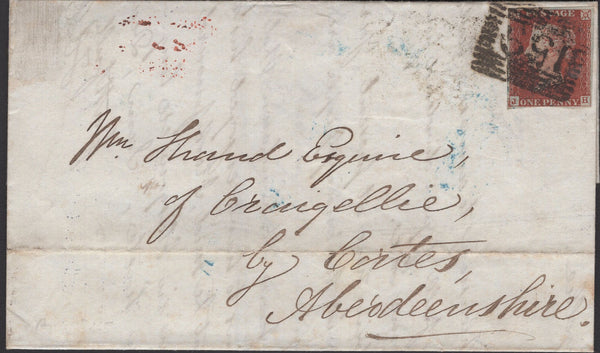 POSTAGE
J ONE PENNY H
Wm Shand Esquire,
of Craigellie,
by Cortes,
Aberdeenshire.